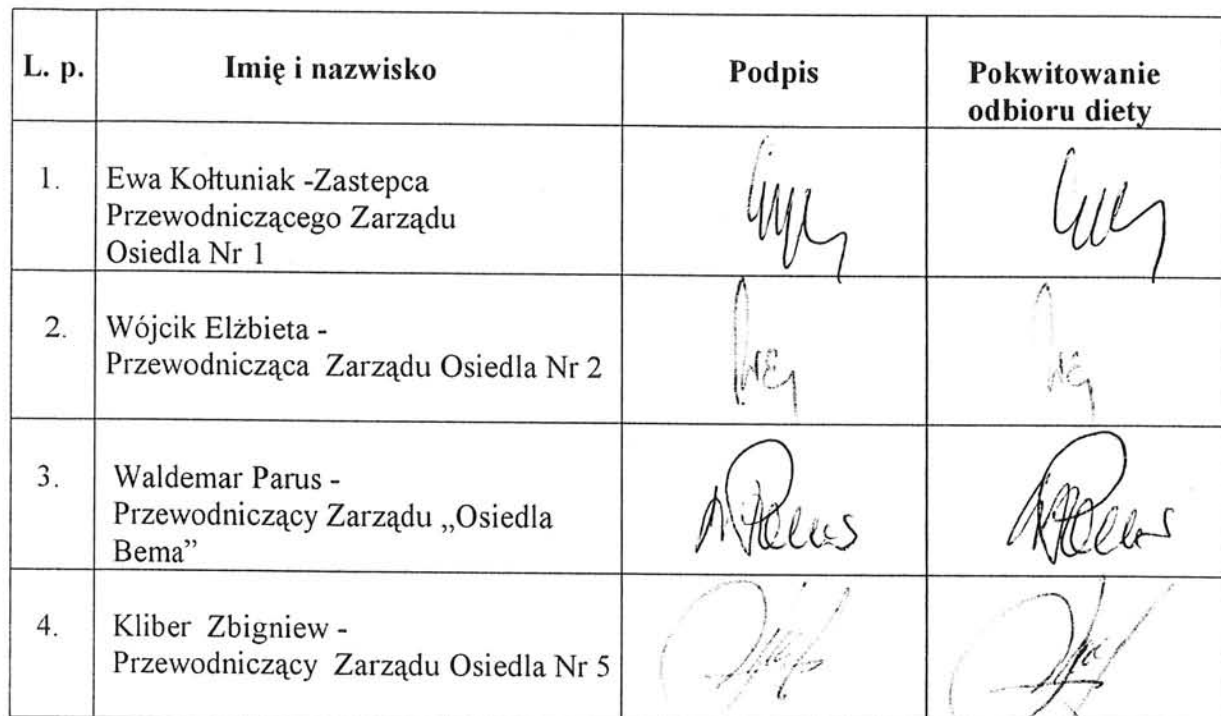 L. p. Imię i nazwisko Podpis Pokwitowanie
odbioru diety
1. Ewa Kołtuniak -Zastepca
Przewodniczącego Zarządu
Osiedla Nr 1
2. Wójcik Elżbieta -
Przewodnicząca Zarządu Osiedla Nr 2
3. Waldemar Parus -
Przewodniczący Zarządu „Osiedla
Bema”
4. Kliber Zbigniew -
Przewodniczący Zarządu Osiedla Nr 5